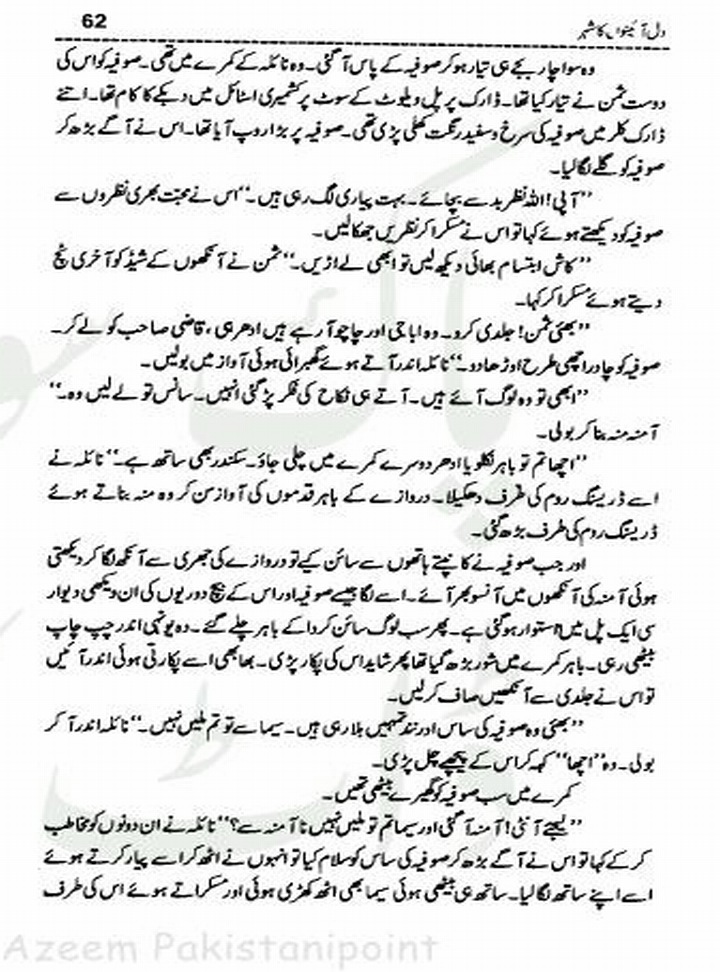 62
دل آئینوں کا شہر
وہ سوا چار بجے ہی تیار ہو کر صوفیہ کے پاس آ گئی۔ وہ نائلہ کے کمرے میں تھی۔ صوفیہ کو اس کی
دوست ثمن نے تیار کیا تھا۔ ڈارک پرپل ویلوٹ کے سوٹ پر کشمیری اسٹائل میں دبکے کا کام تھا۔ اتنے
ڈارک کلر میں صوفیہ کی سرخ و سفید رنگت کھلی پڑی تھی۔ صوفیہ پر بڑا روپ آیا تھا۔ اس نے آگے بڑھ کر
صوفیہ کو گلے لگا لیا۔
’’آپی! اللہ نظر بد سے بچائے۔ بہت پیاری لگ رہی ہیں۔‘‘ اس نے محبت بھری نظروں سے
صوفیہ کو دیکھتے ہوئے کہا تو اس نے مسکرا کر نظریں جھکا لیں۔
’’کاش ابتسام بھائی دیکھ لیں تو ابھی لے اڑیں۔‘‘ ثمن نے آنکھوں کے شیڈ کو آخری ٹچ
دیتے ہوئے مسکرا کر کہا۔
’’بھئی ثمن! جلدی کرو۔ وہ ابا جی اور چاچو آ رہے ہیں ادھر ہی، قاضی صاحب کو لے کر۔
صوفیہ کو چادر اچھی طرح اوڑھا دو۔‘‘ نائلہ اندر آتے ہوئے گھبرائی ہوئی آواز میں بولیں۔
’’ابھی تو وہ لوگ آئے ہیں۔ آتے ہی نکاح کی فکر پڑ گئی انہیں۔ سانس تو لے لیں وہ۔‘‘
آمنہ منہ بنا کر بولی۔
’’اچھا تم تو باہر نکلو یا ادھر دوسرے کمرے میں چلی جاؤ۔ سکندر بھی ساتھ ہے۔‘‘ نائلہ نے
اسے ڈریسنگ روم کی طرف دھکیلا۔ دروازے کے باہر قدموں کی آواز سن کر وہ منہ بناتے ہوئے
ڈریسنگ روم کی طرف بڑھ گئی۔
اور جب صوفیہ نے کانپتے ہاتھوں سے سائن کیے تو دروازے کی جھری سے آنکھ لگا کر دیکھتی
ہوئی آمنہ کی آنکھوں میں آنسو بھر آئے۔ اسے لگا جیسے صوفیہ اور اس کے بیچ دوریوں کی ان دیکھی دیوار
سی ایک پل میں استوار ہو گئی ہے۔ پھر سب لوگ سائن کروا کے باہر چلے گئے۔ وہ یونہی اندر چپ چاپ
بیٹھی رہی۔ باہر کمرے میں شور بڑھ گیا تھا پھر شاید اس کی پکار پڑی۔ بھابھی اسے پکارتی ہوئی اندر آئیں
تو اس نے جلدی سے آنکھیں صاف کر لیں۔
’’بھئی وہ صوفیہ کی ساس اور نند تمہیں بلا رہی ہیں۔ سیما سے تو تم ملیں نہیں۔‘‘ نائلہ اندر آ کر
بولی۔ وہ ’’اچھا‘‘ کہہ کر اس کے پیچھے چل پڑی۔
کمرے میں سب صوفیہ کو گھیرے بیٹھی تھیں۔
’’لیجئے آنٹی! آمنہ آ گئی اور سیما تم تو ملیں نہیں نا آمنہ سے؟‘‘ نائلہ نے ان دونوں کو مخاطب
کر کے کہا تو اس نے آگے بڑھ کر صوفیہ کی ساس کو سلام کیا تو انہوں نے اٹھ کر اسے پیار کرتے ہوئے
اسے اپنے ساتھ لگا لیا۔ ساتھ ہی بیٹھی ہوئی سیما بھی اٹھ کھڑی ہوئی اور مسکراتے ہوئے اس کی طرف
Azeem Pakistanipoint